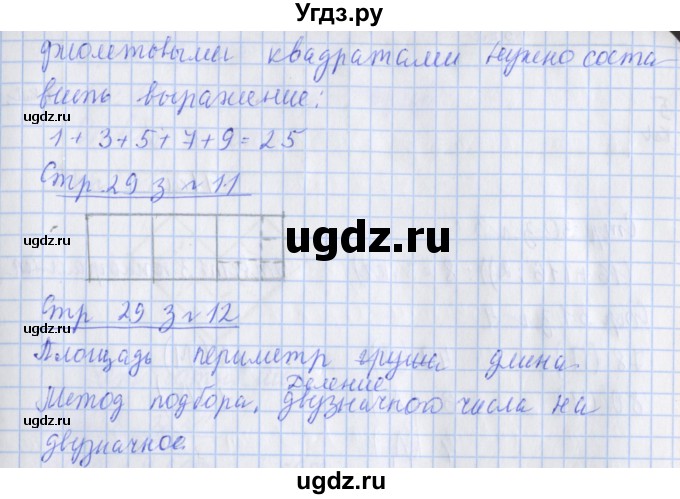 Угдз.ру
фиолетовыми квадратами нужно соста-
вить выражение:
1 + 3 + 5 + 7 + 9 = 25
ugdz.ru
ugdz.ru
Стр 29 з №11
ugdz.ru
ugdz.ru
ugdz.ru
Стр 29 з №12
ugdz.ru
Площадь периметр груша длина.
Деление
Метод подбора, двузначного числа на
двузначное.
ugdz.ru
ugdz.ru